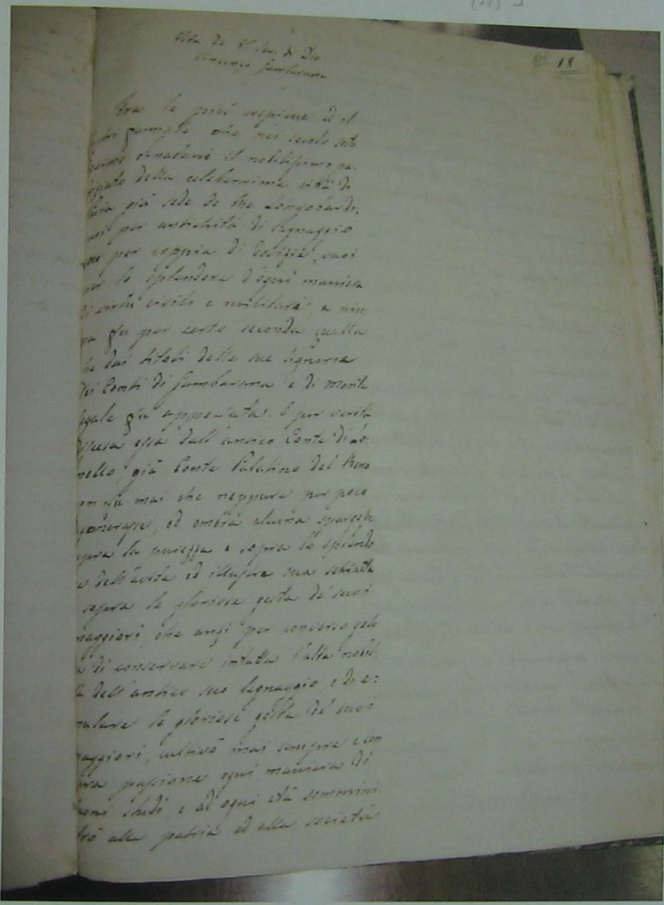 18
Vita del V. Ser. di Dio
Vincenzo Gambarana
Tra le più cospicue ed il
famiglie che nei secolo
ornavano il nobilissimo pa-
della celeberrima città di
già sede de Re Longobardi,
per antichità di legnaggio
per coppia di dovizie, vuoi
per lo splendore d'ogni maniera
di virtù civili e militari, a niu-
na fu per certo seconda quella
che dai titoli delle sue signorie
dei Conti di Gambarana e di Monte
segale fu appellata. E per verità
discesa essa dall'antico Conte
già Conte Palatino del Reno
mai che neppure per poco
ed ombra alcuna spargesse
sopra la purezza e sopra lo splendo
re dell'avita ed illustre sua schiatta
sopra le gloriose gesta de' suoi
maggiori, che anzi per converso gelo
sa di conservare intatta l'alta nobil-
tà dell'antico suo legnaggio e di e-
mulare le gloriose geste de' suoi
maggiori, coltivò mai sempre e con
vera passione ogni maniera di
buoni studi, e ad ogni età sommini-
strò alla patria ed alla società